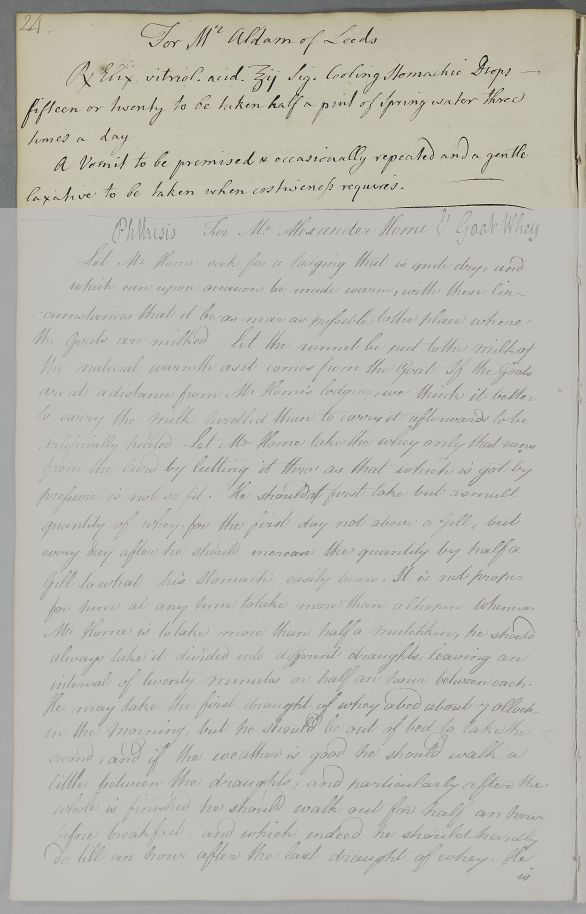 24
For Mr Aldam of Leeds
℞ Elix. vitriol. acid. ℥ij Sig. Cooling Stomachic Drops —
fifteen or twenty to be taken half a pint of spring water three
times a day
A Vomit to be premised & occasionally repeated and a gentle
laxative to be taken when costiveness requires.
Phthisis For Mr Alexander Home Goat Whey
Let Mr Home seek for a lodging that is quite dry, and
which can upon occasion be made warm, with these Cir-
-cumstances that it be as near as possible to the place where
the Goats are milked. Let the runnet be put to the milk of
the natural warmth as it comes from the Goat. If the Goats
are at a distance from Mr Home's lodging, we think it better
to carry the milk curdled than to carry it afterwards to be
artificially heated. Let Mr Home take the whey only that runs
from the Curd by cutting it thro' as that which is got by
pressure is not so fit. He should at first take but a small
quantity of whey, for the first day not above a Gill, but
every day after he should increase the quantity by half a
Gill to what his stomach easily bears. It is not proper
for him at any time to take more than a Chopin. Whenever
Mr Home is to take more than half a mutchkin, he should
always take it divided into different draughts, leaving an
interval of twenty minutes or half an hour between each.
He may take the first draught of whey abed about 7 oClock
in the morning, but he should be out of bed to take the
second, and if the weather is good he should walk a
little between the draughts, and particularly after the
whole is finished he should walk out for half an hour
before breakfast, and which indeed he should hardly
do till an hour after the last draught of whey. He
is